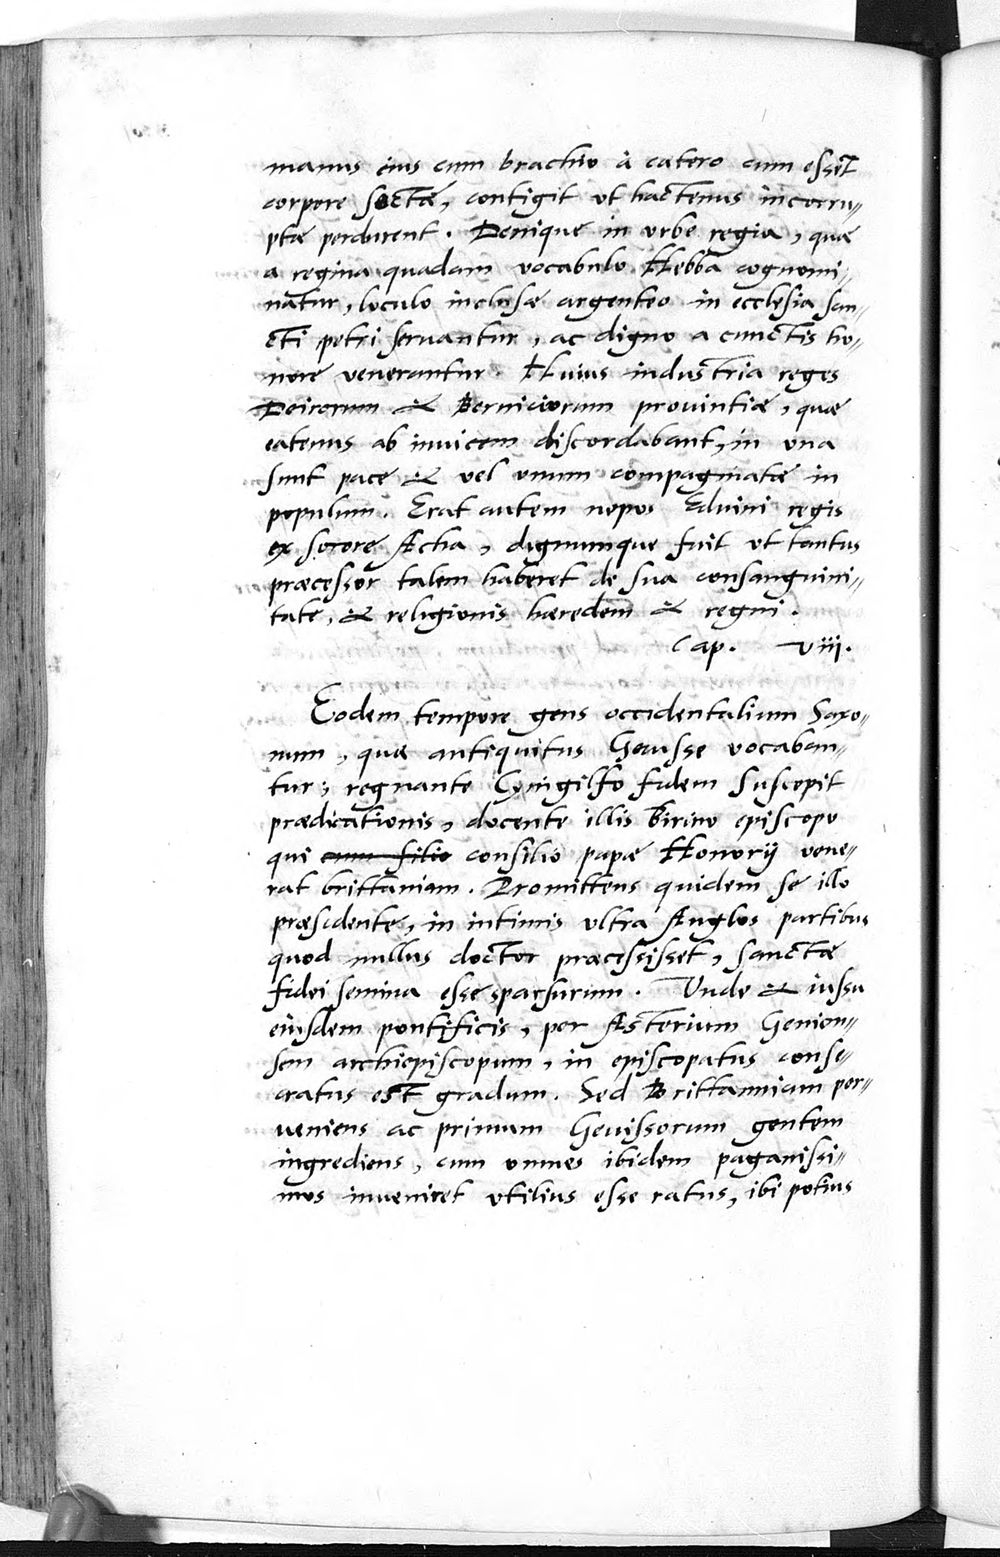 manus eius cum brachio à catero cum esset
corpore sectæ, contigit vt hactenus incorru„
ptæ perdurent. Deniquæ in vrbe regia, quæ
a regina quadam vocabulo Hebba cognomi„
natur, loculo inclusæ argenteo in ecclesia san„
cti petri seruantur, ac digno a cunctis ho„
nore venerantur. Huius industria reges
Deirorum & Berniciorum prouintiæ, quæ
eatenus ab inuicem discordabant, in vna
sunt pace & vel vnum compaginatæ in
populum. Erat autem nepos Eduini regis
ex sorore Acha, dignumque fuit vt tantus
præcessor talem haberet de sua consanguini„
tate, & religionis hæredem & regni.
Cap. viii.
Eodem tempore gens occidentalium Saxo„
num, quæ antiquitus Geuisse vocaban„
tur, regnante Cynigilso fidem suscepit
prædicationis, docente illis Birino episcopo
qui cum filio consilio papæ Honorij vene„
rat brittaniam. Promittens quidem se illo
præsidente, in intimis vltra Anglos partibus
quod nullus doctor præcessisset, sanctæ
fidei semina esse sparsurum. Vnde & iussu
eiusdem pontificis, per Asterium Genien„
sem archiepiscopum, in episcopatus conse„
cratus est gradum. Sed Brittanniam per„
ueniens ac primum Geuissorum gentem
ingrediens, cum omnes ibidem paganissi„
mos inueniret vtilius esse ratus, ibi potius